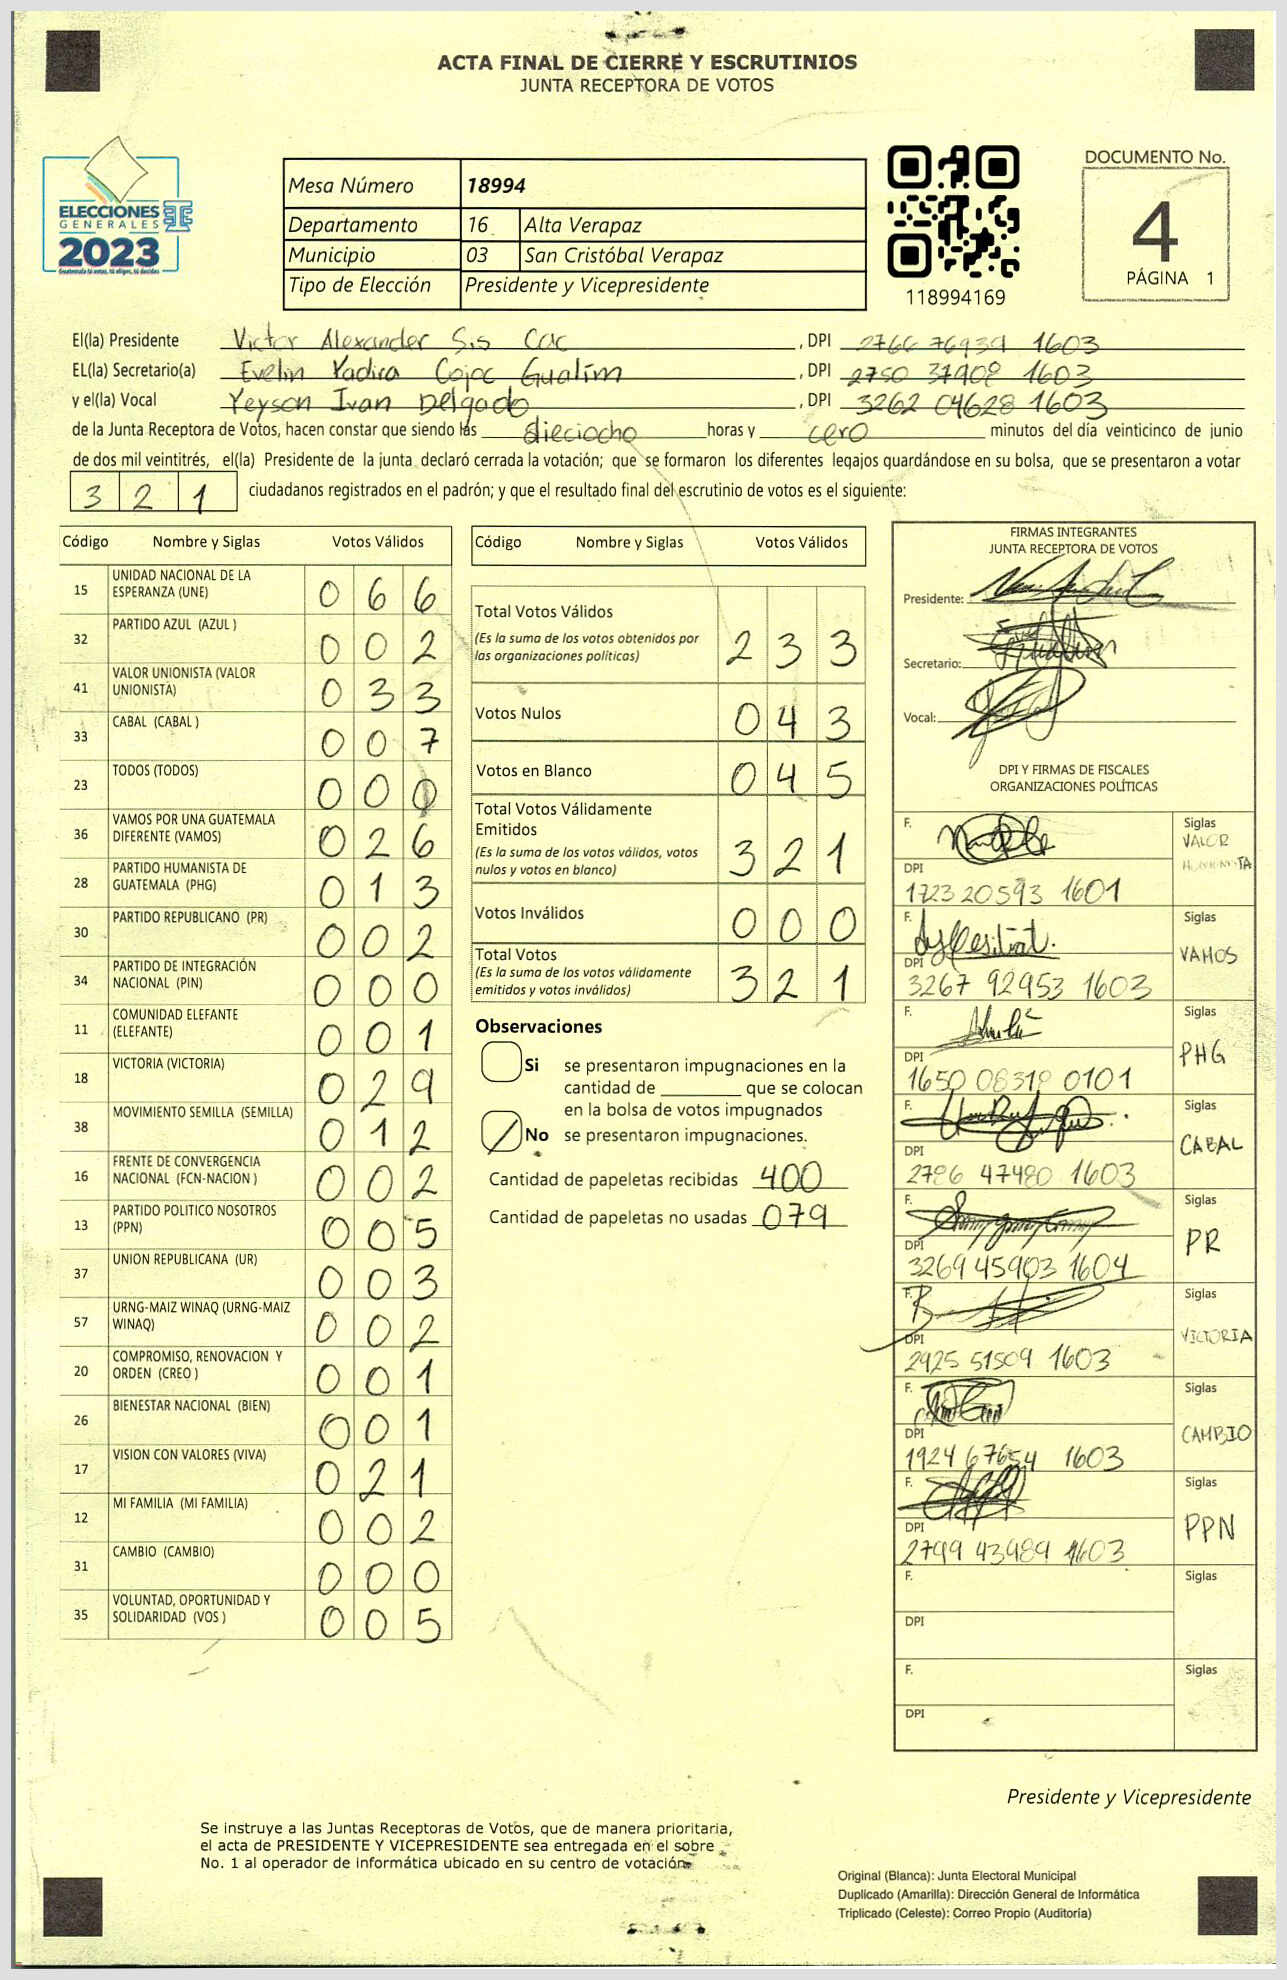 ACTA FINAL DE CIERRE Y ESCRUTINIOS
JUNTA RECEPTORA DE VOTOS
ELECCIONES
GENERALES
2023
Guatemala tú votas, tú eliges, tú decides
Mesa Número 18994
Departamento 16 Alta Verapaz
Municipio 03 San Cristóbal Verapaz
Tipo de Elección Presidente y Vicepresidente
118994169
DOCUMENTO No.
4
PÁGINA 1
El(la) Presidente Victor Alexander Sis Cac, DPI 2766 76939 1603
EL(la) Secretario(a) Evelin Yadira Cojoc Gualim, DPI 2750 37908 1603
y el(la) Vocal Yeyson Ivan Delgado, DPI 3262 04628 1603
de la Junta Receptora de Votos, hacen constar que siendo las dieciocho horas y cero minutos del día veinticinco de junio
de dos mil veintitrés, el(la) Presidente de la junta declaró cerrada la votación; que se formaron los diferentes legajos guardándose en su bolsa, que se presentaron a votar
321 ciudadanos registrados en el padrón; y que el resultado final del escrutinio de votos es el siguiente:
Código Nombre y Siglas Votos Válidos
15 UNIDAD NACIONAL DE LA ESPERANZA (UNE) 066
32 PARTIDO AZUL (AZUL ) 002
41 VALOR UNIONISTA (VALOR UNIONISTA) 033
33 CABAL (CABAL ) 007
23 TODOS (TODOS) 000
36 VAMOS POR UNA GUATEMALA DIFERENTE (VAMOS) 026
28 PARTIDO HUMANISTA DE GUATEMALA (PHG) 013
30 PARTIDO REPUBLICANO (PR) 002
34 PARTIDO DE INTEGRACIÓN NACIONAL (PIN) 000
11 COMUNIDAD ELEFANTE (ELEFANTE) 001
18 VICTORIA (VICTORIA) 029
38 MOVIMIENTO SEMILLA (SEMILLA) 012
16 FRENTE DE CONVERGENCIA NACIONAL (FCN-NACION ) 002
13 PARTIDO POLITICO NOSOTROS (PPN) 005
37 UNION REPUBLICANA (UR) 003
57 URNG-MAIZ WINAQ (URNG-MAIZ WINAQ) 002
20 COMPROMISO, RENOVACION Y ORDEN (CREO ) 001
26 BIENESTAR NACIONAL (BIEN) 001
17 VISION CON VALORES (VIVA) 021
12 MI FAMILIA (MI FAMILIA) 002
31 CAMBIO (CAMBIO) 000
35 VOLUNTAD, OPORTUNIDAD Y SOLIDARIDAD (VOS ) 005
Código Nombre y Siglas Votos Válidos
Total Votos Válidos 233
(Es la suma de los votos obtenidos por
las organizaciones politicas)
Votos Nulos 043
Votos en Blanco 045
Total Votos Válidamente
Emitidos 321
(Es la suma de los votos válidos, votos
nulos y votos en blanco)
Votos Inválidos 000
Total Votos 321
(Es la suma de los votos válidamente
emitidos y votos inválidos)
Observaciones
Si se presentaron impugnaciones en la
cantidad de ________ que se colocan
en la bolsa de votos impugnados
No se presentaron impugnaciones.
Cantidad de papeletas recibidas 400
Cantidad de papeletas no usadas 079
FIRMAS INTEGRANTES
JUNTA RECEPTORA DE VOTOS
Presidente:
Secretario:
Vocal:
DPI Y FIRMAS DE FISCALES
ORGANIZACIONES POLÍTICAS
F. Siglas VALOR
DPI 1723 20593 1601
F. Siglas VAMOS
DPI 3267 92953 1603
F. Siglas PHG
DPI 1650 08318 0101
F. Siglas CABAL
DPI 2786 47480 1603
F. Siglas PR
DPI 3269 45903 1604
F. Siglas VICTORIA
DPI 2925 51509 1603
F. Siglas CAMBIO
DPI 1924 67654 1603
F. Siglas PPN
DPI 2799 43989 1603
F. Siglas
DPI
F. Siglas
DPI
Presidente y Vicepresidente
Se instruye a las Juntas Receptoras de Votos, que de manera prioritaria,
el acta de PRESIDENTE Y VICEPRESIDENTE sea entregada en el sobre
No. 1 al operador de informática ubicado en su centro de votación.
Original (Blanca): Junta Electoral Municipal
Duplicado (Amarilla): Dirección General de Informática
Triplicado (Celeste): Correo Propio (Auditoría)